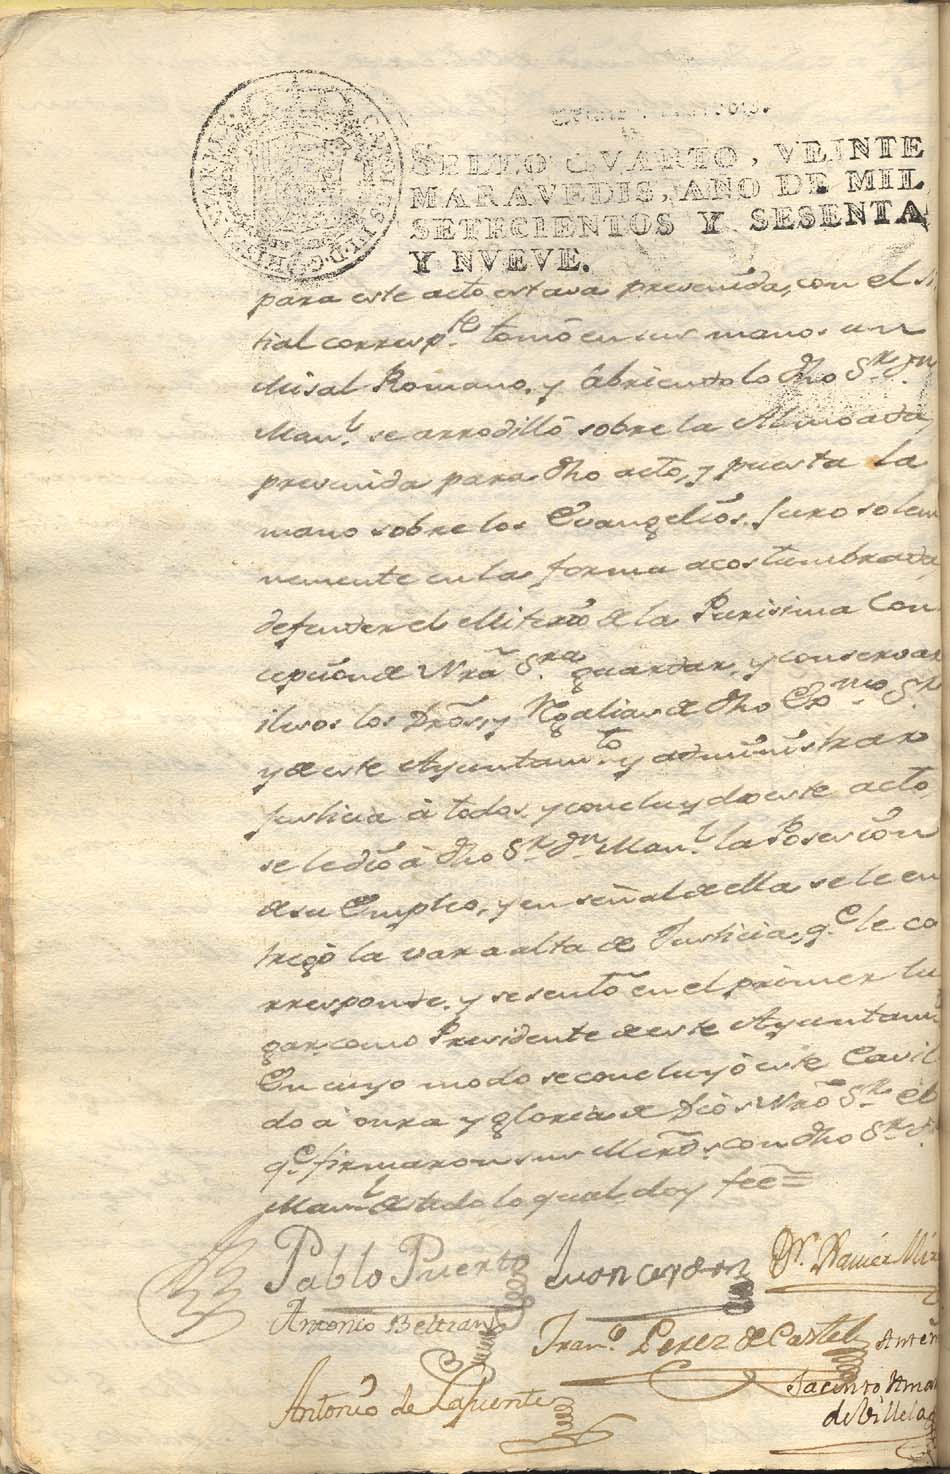 SELLO QVARTO, VEINTE
MARAVEDIS, AÑO DE MIL
SETECIENTOS Y SESENTA
Y NVEVE.
para este acto estava prevenida, con el si
tial corresp.te tomó en sus manos un
Misal Romano, y abriendolo dho S.r D.n
Man.l se arrodilló sobre la Almoada,
prevenida para dho acto, y puesta la
mano sobre los Evangelios, juro solem
nemente en la forma acostumbrada,
defender el Misterio de la Purisima Con
cepcion de Nrâ S.ra guardar, y conservar
ilesos los Drõs, y Regalias de dho Ex.mo S.r
y de este Ayuntam.to y administrar
justicia à todos, y concluydo este acto,
se le dio à dho S.r D.n Man.l la Posesion
de su Empleo, y en señal de ella se le en
tregò la vara alta de Justicia, q.e le co
rresponde, y se sentò en el primer lu
gar, como Presidente de este Ayuntam.
En cuyo modo se concluyò este Cavil
do à onra y gloria de Dios Nrõ S.r el
q.e firmaron sus Mercds, con dho S.r D.n
Man.l de todo lo qual doy fee=
Pablo Puerto Juan Cerdan Dr. Xavier
Antonio Beltran Fran.co Perez de Castel
Antonio de Lafuente
Jacinto
de Villela